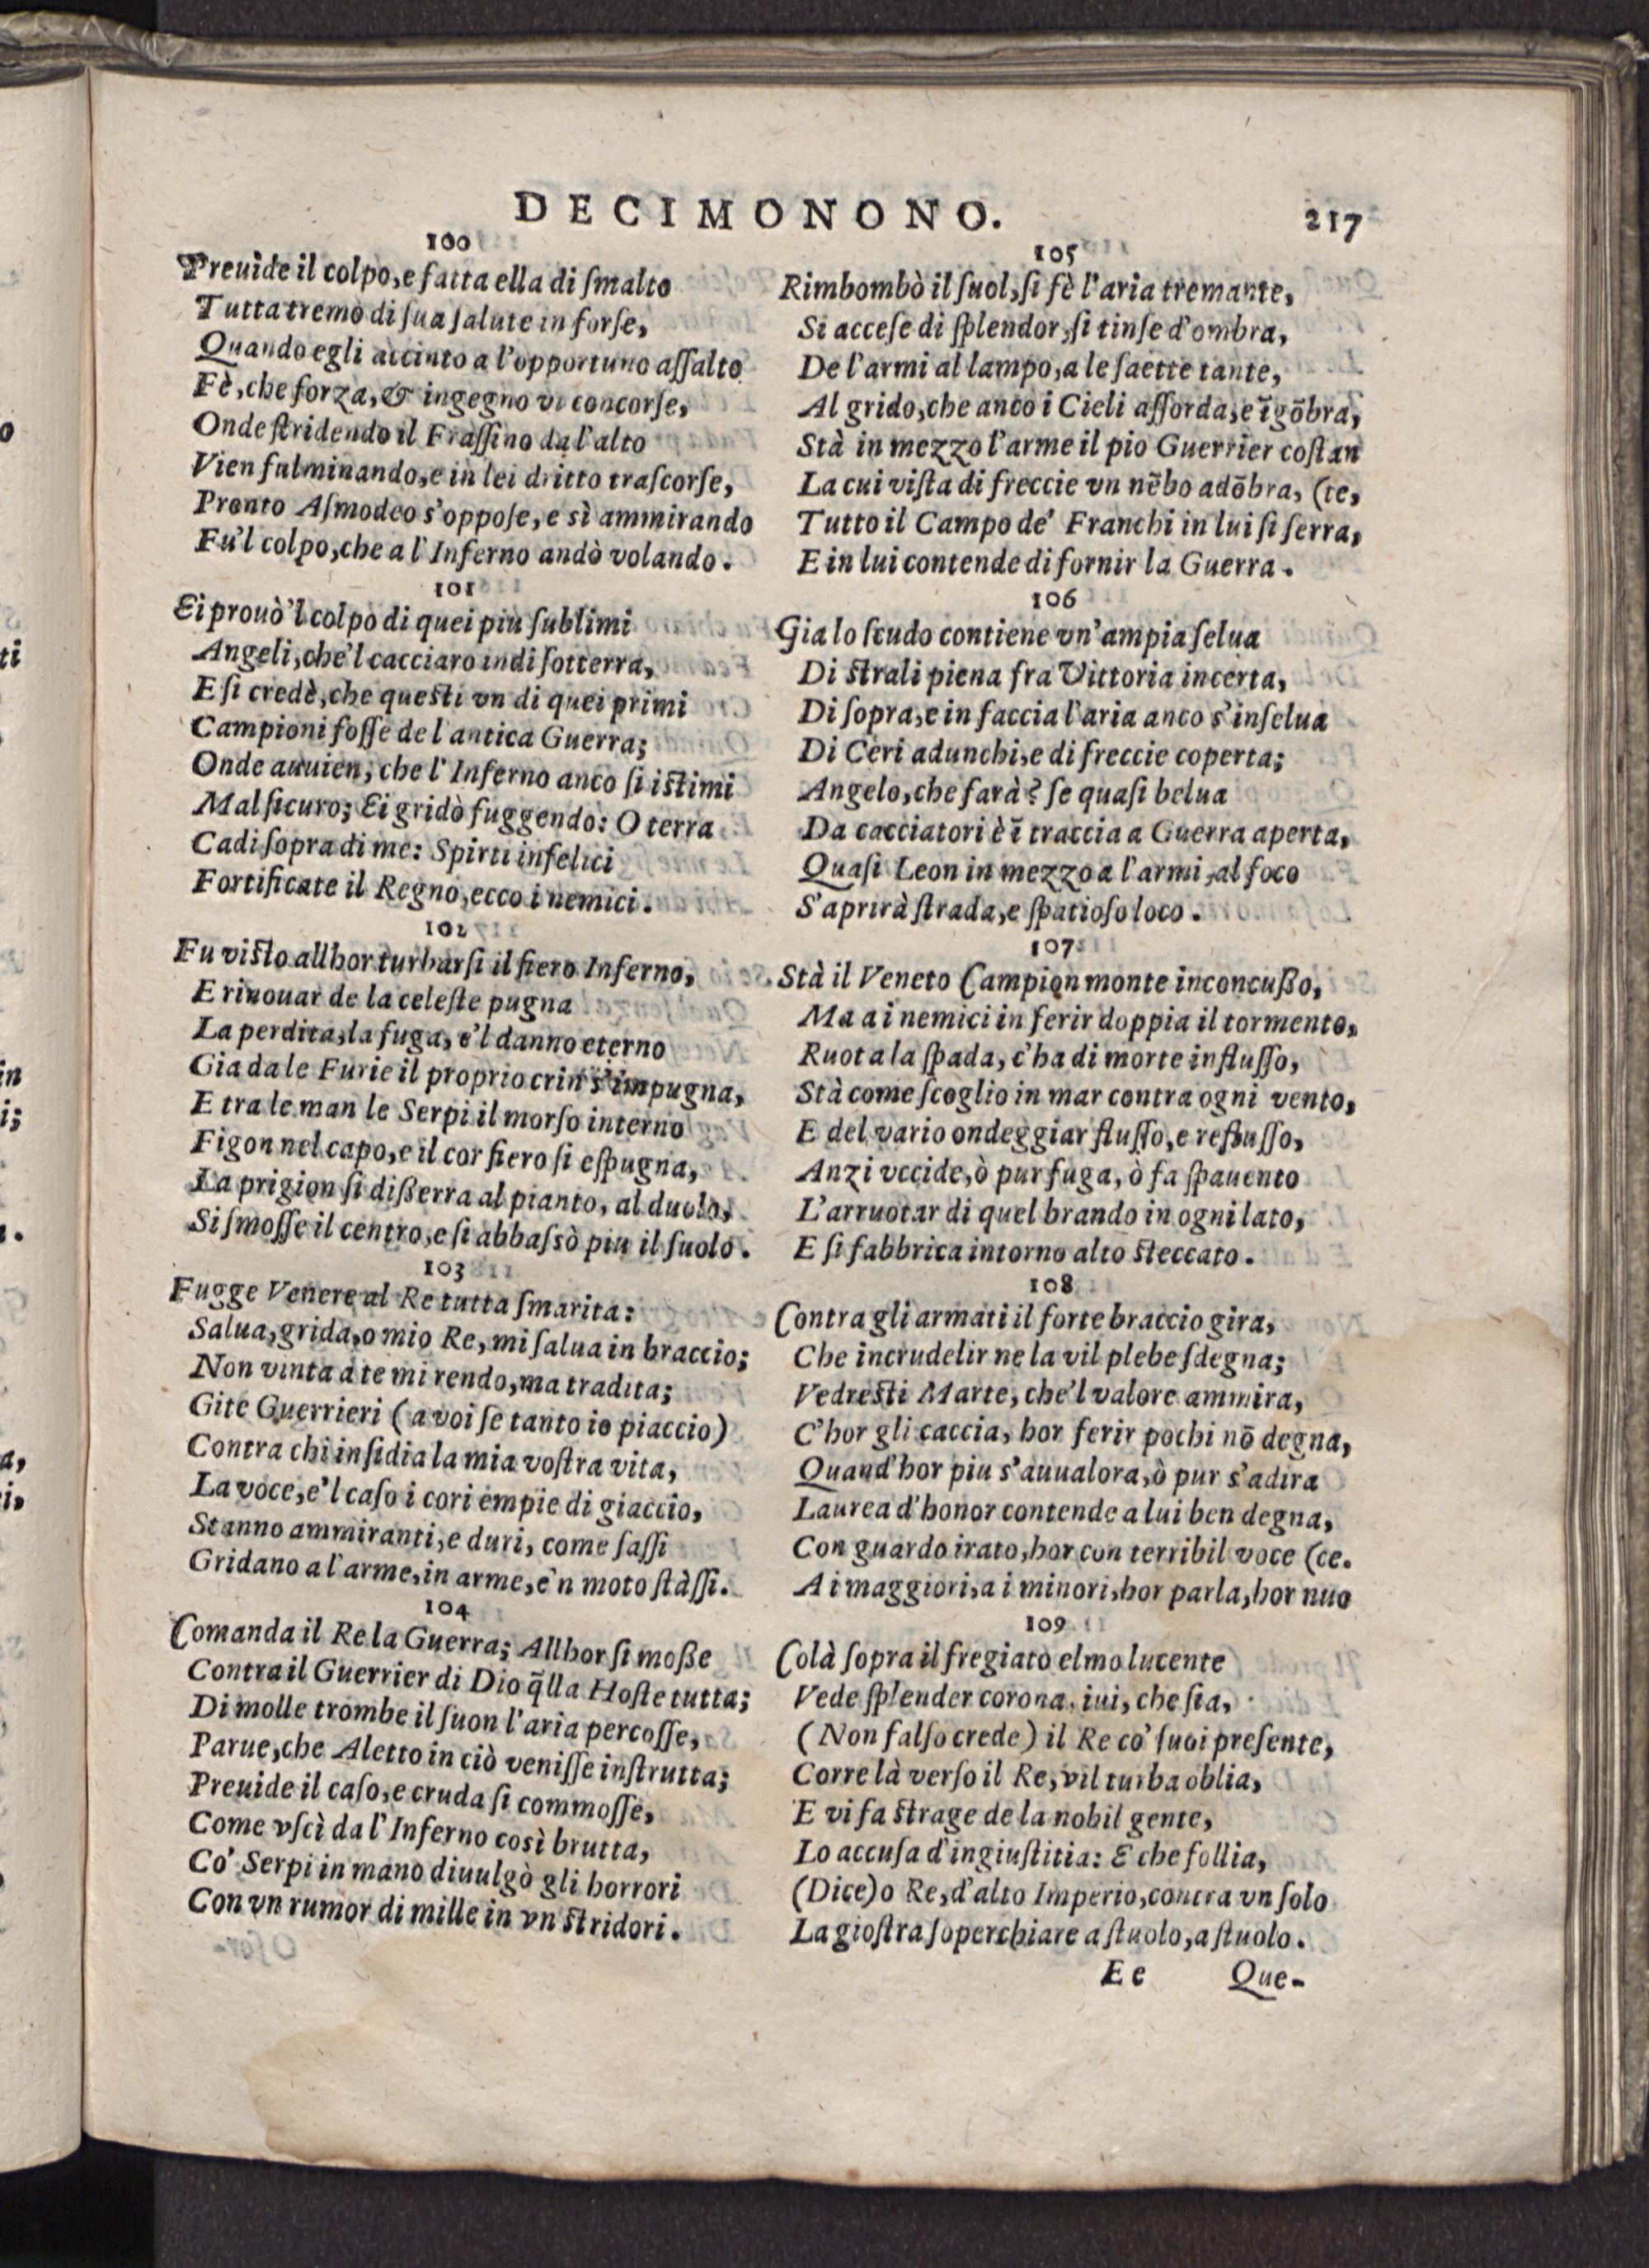 DECIMONONO.
217
100
Preuide il colpo, e fatta ella di ſmalto
Tutta tremò di ſua ſalute in forſe,
Quando egli accinto a l'opportuno aſſalto
Fè, che forza, & ingegno vi concorſe,
Onde ſtridendo il Fraſſino da l'alto
Vien fulminando, e in lei dritto traſcorſe,
Pronto Aſmodeo s'oppoſe, e sì ammirando
Fu'l colpo, che a l'Inferno andò volando.
101
Ei prouò'l colpo di quei piu ſublimi
Angeli, che'l cacciaro indi ſotterra,
E ſi credè, che queſti vn di quei primi
Campioni foſſe de l'antica Guerra;
Onde auuien, che l'Inferno anco ſi iſtimi
Mal ſicuro; Ei gridò fuggendo: O terra
Cadi ſopra di me: Spirti infelici
Fortificate il Regno, ecco i nemici.
102
Fu viſto allhor turbarſi il fiero Inferno,
E rinouar de la celeſte pugna
La perdita, la fuga, e'l danno eterno
Gia da le Furie il proprio crin s'impugna,
E tra le man le Serpi il morſo interno
Figon nel capo, e il cor fiero ſi eſpugna,
La prigion ſi diſserra al pianto, al duolo,
Si ſmoſſe il centro, e ſi abbaſsò piu il ſuolo.
103
Fugge Venere al Re tutta ſmarita:
Salua, grida, o mio Re, mi ſalua in braccio;
Non vinta a te mi rendo, ma tradita;
Gite Guerrieri (a voi ſe tanto io piaccio)
Contra chi inſidia la mia voſtra vita,
La voce, e'l caſo i cori empie di giaccio,
Stanno ammiranti, e duri, come ſaſſi
Gridano a l'arme, in arme, e'n moto ſtàſſi.
104
Comanda il Re la Guerra; Allhor ſi moſse
Contra il Guerrier di Dio q̃lla Hoſte tutta;
Di molle trombe il ſuon l'aria percoſſe,
Parue, che Aletto in ciò veniſſe inſtrutta;
Preuide il caſo, e cruda ſi commoſſe,
Come vſcì da l'Inferno così brutta,
Co' Serpi in mano diuulgò gli horrori
Con vn rumor di mille in vn ſtridori.
105
Rimbombò il ſuol, ſi fè l'aria tremante,
Si acceſe di ſplendor, ſi tinſe d'ombra,
De l'armi al lampo, a le ſaette tante,
Al grido, che anco i Cieli aſſorda, e ĩgõbra,
Stà in mezzo l'arme il pio Guerrier coſtan
La cui viſta di freccie vn nẽbo adõbra, (te,
Tutto il Campo de' Franchi in lui ſi ſerra,
E in lui contende di fornir la Guerra.
106
Gia lo ſcudo contiene vn'ampia ſelua
Di ſtrali piena fra Vittoria incerta,
Di ſopra, e in faccia l'aria anco s'inſelua
Di Ceri adunchi, e di freccie coperta;
Angelo, che farà? ſe quaſi belua
Da cacciatori è ĩ traccia a Guerra aperta,
Quaſi Leon in mezzo a l'armi, al foco
S'aprirà ſtrada, e ſpatioſo loco.
107
Stà il Veneto Campion monte inconcuſso,
Ma a i nemici in ferir doppia il tormento,
Ruota la ſpada, c'ha di morte influſſo,
Stà come ſcoglio in mar contra ogni vento,
E del vario ondeggiar fluſſo, e refluſſo,
Anzi vccide, ò pur fuga, ò fa ſpauento
L'arruotar di quel brando in ogni lato,
E ſi fabbrica intorno alto ſteccato.
108
Contra gli armati il forte braccio gira,
Che incrudelir ne la vil plebe ſdegna;
Vedreſti Marte, che'l valore ammira,
C'hor gli caccia, hor ferir pochi nõ degna,
Quand'hor piu s'auualora, ò pur s'adira
Laurea d'honor contende a lui ben degna,
Con guardo irato, hor con terribil voce (ce.
A i maggiori, a i minori, hor parla, hor nuo
109
Colà ſopra il fregiato elmo lucente
Vede ſplender corona, iui, che ſia,
(Non falſo crede) il Re co' ſuoi preſente,
Corre là verſo il Re, vil turba oblia,
E vi fa ſtrage de la nobil gente,
Lo accuſa d'ingiuſtitia: E che follia,
(Dice) o Re, d'alto Imperio, contra vn ſolo
La gioſtra ſoperchiare a ſtuolo, a ſtuolo.
Ee
Que-